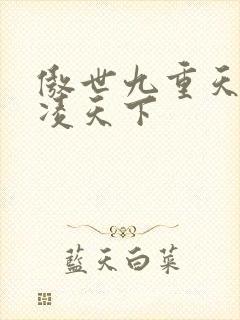 傲世九重天
凌天下
藍天白菜